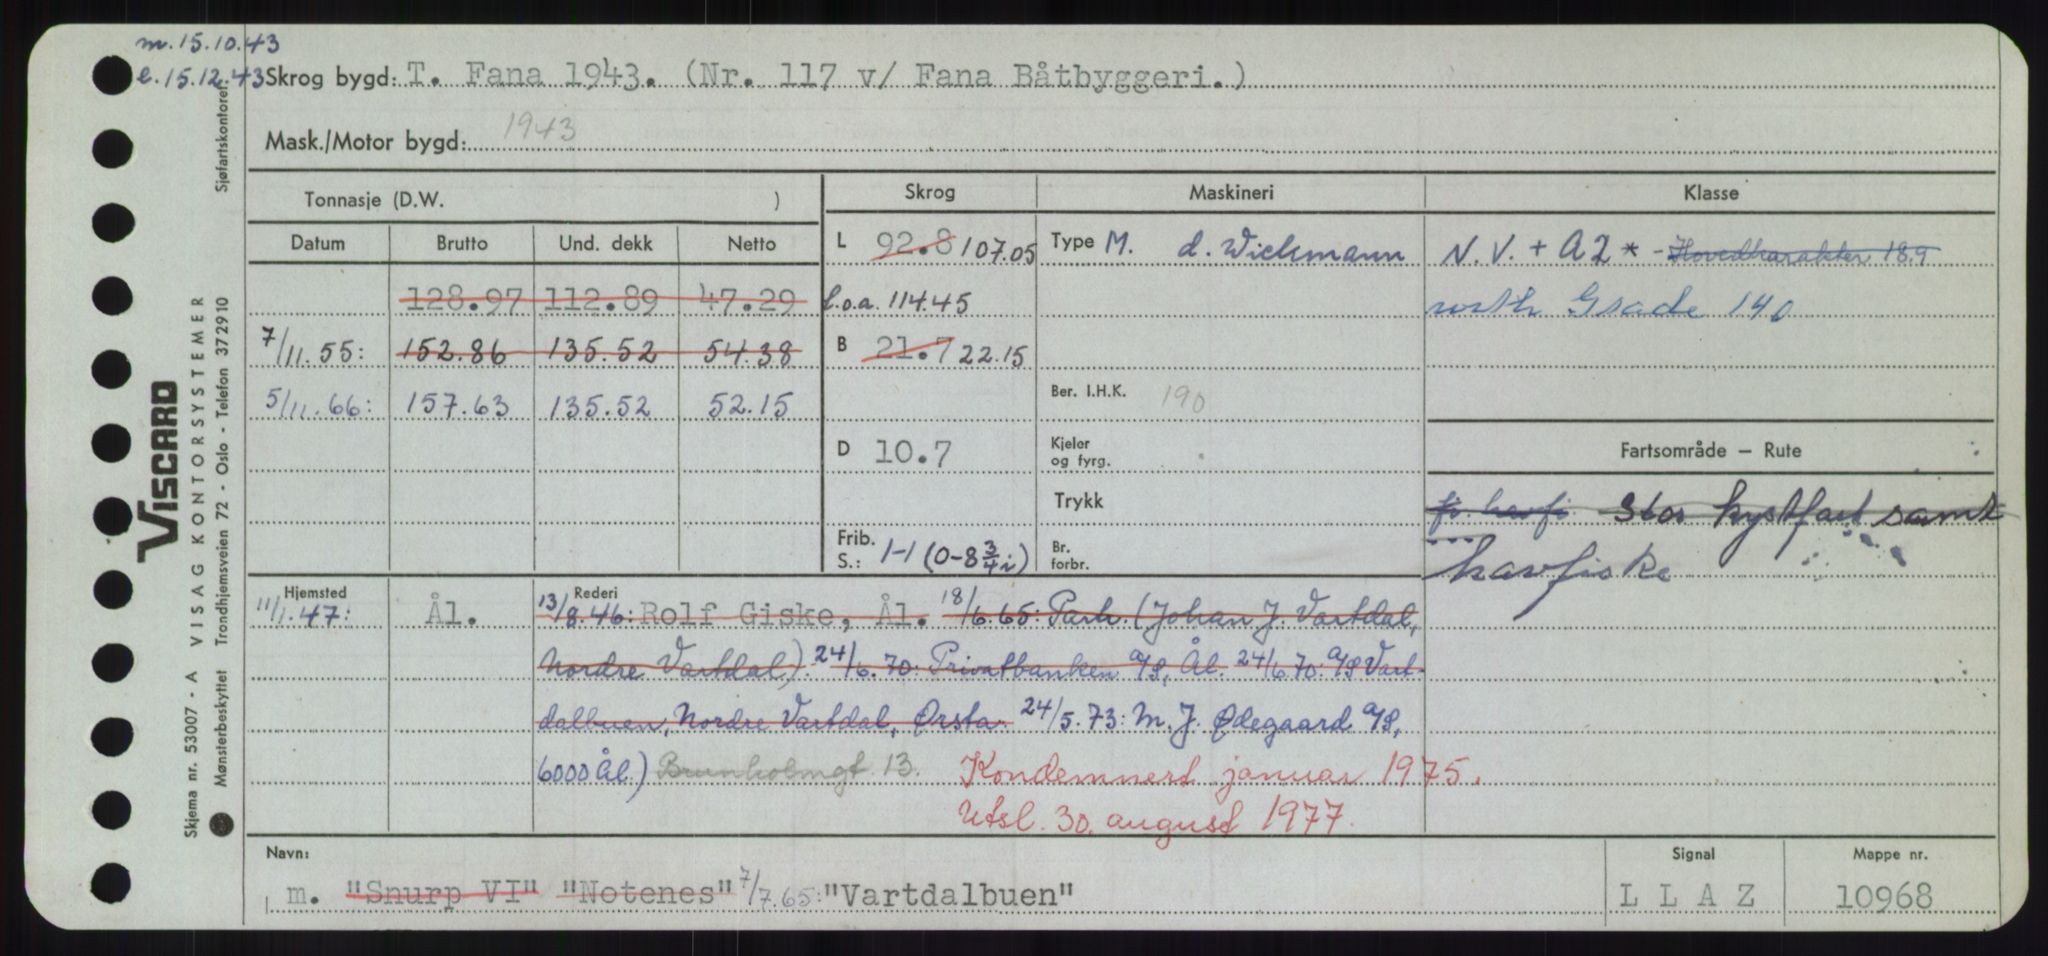 m. 15.10.43
l. 15.12.43 Skrog bygd: T. Fana 1943. (Nr. 117 v/ Fana Båtbyggeri.)
Mask./Motor bygd: 1943
Tonnasje (D.W. ) Skrog Maskineri Klasse
Datum Brutto Und. dekk Netto
L 92.8 107.05 Type M. d. Wickmann N.V. + A2 * - Hovedkarakter 18.9
128.97 112.89 47.29 l.o.a. 114.45 north Grade 140
7/11.55: 152.86 135.52 54.38 B 21.7 22.15
5/11.66: 157.63 135.52 52.15 Ber. I.H.K. 190
D 10.7 Kjeler og fyrg. Fartsområde – Rute
Trykk fi havfi Stor kystfart samt
Frib. S.: 1-1 (0-8 3/4 i) Br. forbr. havfiske
Hjemsted Rederi
11/1.47: Ål. 13/8.46: Rolf Giske, Ål. 18/6.65: Partr. (Johan J. Vartdal,
Nordre Vartdal). 24/6.70: Privatbanken A/S, Ål. 24/6.70: A/S Vart-
dalbuen, Nordre Vartdal, Ørsta. 24/5.73: M. J. Ødegaard A/S,
6000 Ål.) Brunholmgt 13. Kondemnert januar 1975.
Utsl. 30. august 1977.
Navn: Signal Mappe nr.
m. "Snurp VI" "Notenes" 7/7.65: "Vartdalbuen" L L A Z 10968
Viscard
VISAG KONTORSYSTEMER
Skjema nr. 53007 - A
Mønsterbeskyttet Trondhjemsveien 72 - Oslo - Telefon 372910 Sjøfartskontoret